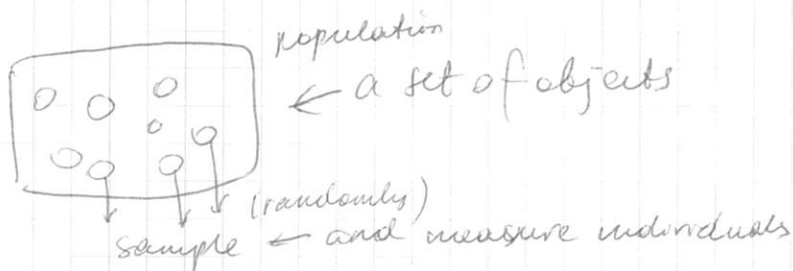 population
← a set of objects
(randomly)
sample ← and measure individuals